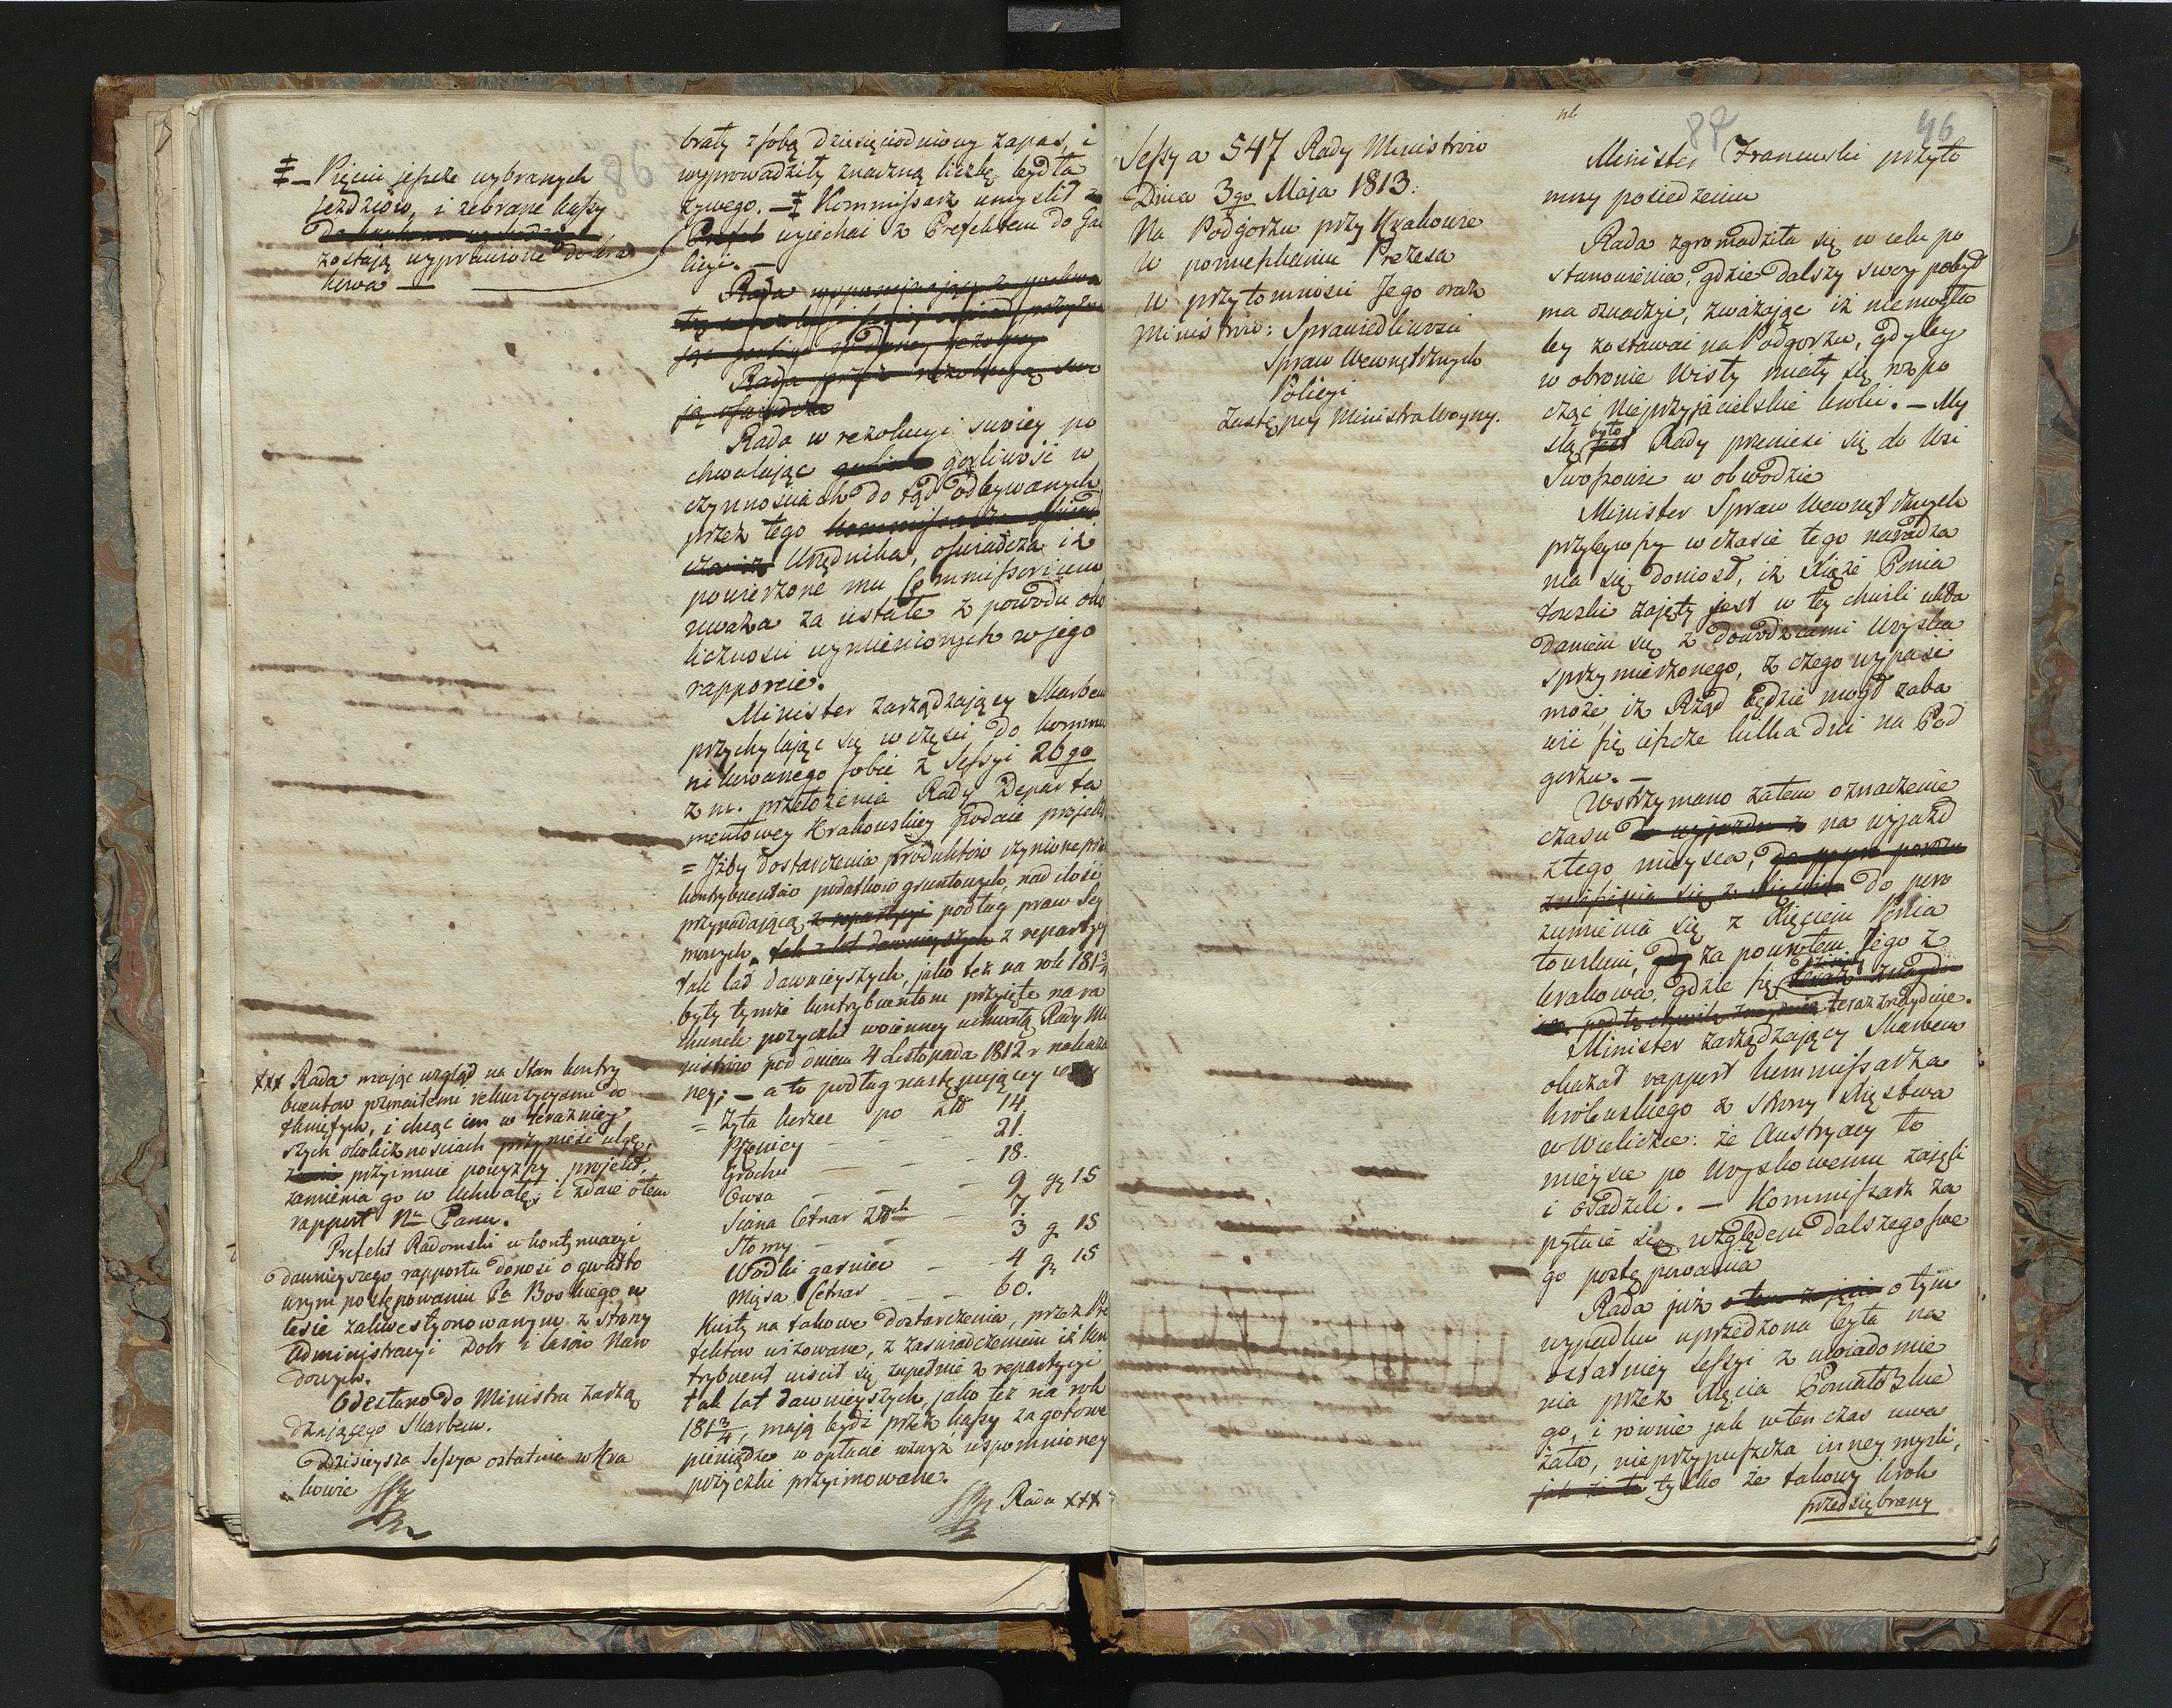 ‡ – Pięciu jeszcze wybranych
jezdzców, i zebrane kassy
zostaią wyprawione do Kra
kowa —
xxx Rada maiąc wzgląd na Stan kontry
buentow rozmaitemi rekwizycyami do
tkniętych, i chcąc im w teraźniey
szych okolicznościach przynieść ulgę,
przyimuie powyższy projekt,
zamienia go w uchwałę, i zdaie o tem
rapport Nu Panu.
Prefekt Radomski w kontynuacyi
dawnieyszego rapportu donosi o gwałto
wnym postępowaniu Pa Boskiego w
lasie zakwestyonowanym z strony
Administracyi Dobr i lasów Naro
dowych.
Odesłano do Ministra zarzą
dzaiącego Skarbem.
Dzisieysza Sessya ostatnia w Kra
kowie
86
brały z sobą dziesięciodniowy zapas, i
wyprowadziły znaczną liczbę bydła
żywego. – ‡ Kommissarz umyślił
Prefek wyiechać z Prefektem do Ga
licyi. –
Rada
Rada przez rezolucyą swo
ją oświadcza
Rada w rezolucyi swoiey po
chwalaiąc gorliwość w
czynnościach do tąd odbywanych
przez tego
Urzędnika, oświadcza iż
powierzone mu Commissorium
uważa za ustałe z powodu oko
liczności wymienionych w jego
rapporcie.
Minister zarządzaiący Skarbem
przychylaiąc się w części do kommu
nikowanego sobie z Sessyi 20go
z. m. przełożenia Rady Departa
mentowey Krakowskiey podaie projekt,
= Iżby dostarczenia produktów czynione przez
kontrybuentów podatków gruntowych, nad ilość
przypadaiącą z repartycyi podług praw Sey
mowych, tak z lat dawnieyszych z repartycyi
tak lat dawnieyszych, jako też na rok 1813/4
były tymże kontrybuentom przyięte na ra
chunek pożyczki woienney uchwałą Rady Mi
nistrów pod dniem 4 Listopada 1812 r nakaza
ney; – a to podług następuiącey ceny
= Żyta korzec po Złł 14.
Pszenicy – – – 21.
Grochu – – – 18.
Owsa – – – 9 gr 15
Siana Cetnar Złłch – 7.
Słomy – – – 3 g 15
Wodki garniec – – 4 gr 15
Mięsa Cetnar – – 60.
Kwity na takowe dostarczenia, przez Pre
fektów wizowane, z zaświadczeniem iż kon
trybuent uiścił się zupełnie z repartycyi
tak lat dawnieyszych, jako też na rok
1813/4, maią bydź przez kassy za gotowe
pieniądze w opłacie wzwyż wspomnioney
pożyczki przyimowane.
Rada xxx
Sessya 547 Rady Ministrów
Dnia 3go Maja 1813.
Na Podgorzu przy Krakowie
w pomieszkaniu Prezesa
w przytomności Jego oraz
Ministrów: Sprawiedliwości
Spraw Wewnętrznych
Policyi
Zastępcy Ministra Woyny.
nb
88
46
Minister Francuski przyto
mny posiedzeniu
Rada zgromadziła się w celu po
stanowienia, gdzie dalszy swoy pobyt
ma oznaczyć, zważaiąc iż niemogła
by zostawać na Podgorzu, gdyby
w obronie Wisły miały się rozpo
cząć Nieprzyiacielskie kroki. – My
ślą było jest Rady przenieść się do Wsi
Swoszowic w obwodzie
Minister Spraw Wewnętrznych
przybywszy w czasie tego naradza
nia się doniosł, iż Xiąże Ponia
towski zaięty jest w tey chwili ukła
daniem się z dowodzcami Woyska
sprzymierzonego, z czego wypaść
może iż Rząd będzie mogł zaba
wić się ieszcze kilka dni na Pod
gorzu. –
Wstrzymano zatem oznaczenie
czasu do wyjazdu z na wyjazd
z tego mieysca,
do poro
zumienia się z Xięciem Ponia
towskim, za powrotem Jego z
Krakowa, gdzie się
teraz znayduie.
Minister zarządzaiący Skarbem
okazał rapport kommissarza
królewskiego z strony Xięstwa
w Wieliczce: że Austryacy to
mieysce po Woyskowemu zaięli
i osadzili. – Kommissarz za
pytuie się względem dalszego swe
go postępowania
Rada już o tym
wypadku uprzedzona była na
ostatniey Sessyi z uwiadomie
nia przez Xięcia Poniatowskie
go, i rownie jak w ten czas uwa
żała, nieprzypuszcza inney myśli,
tylko że takowy krok
przedsiębrany